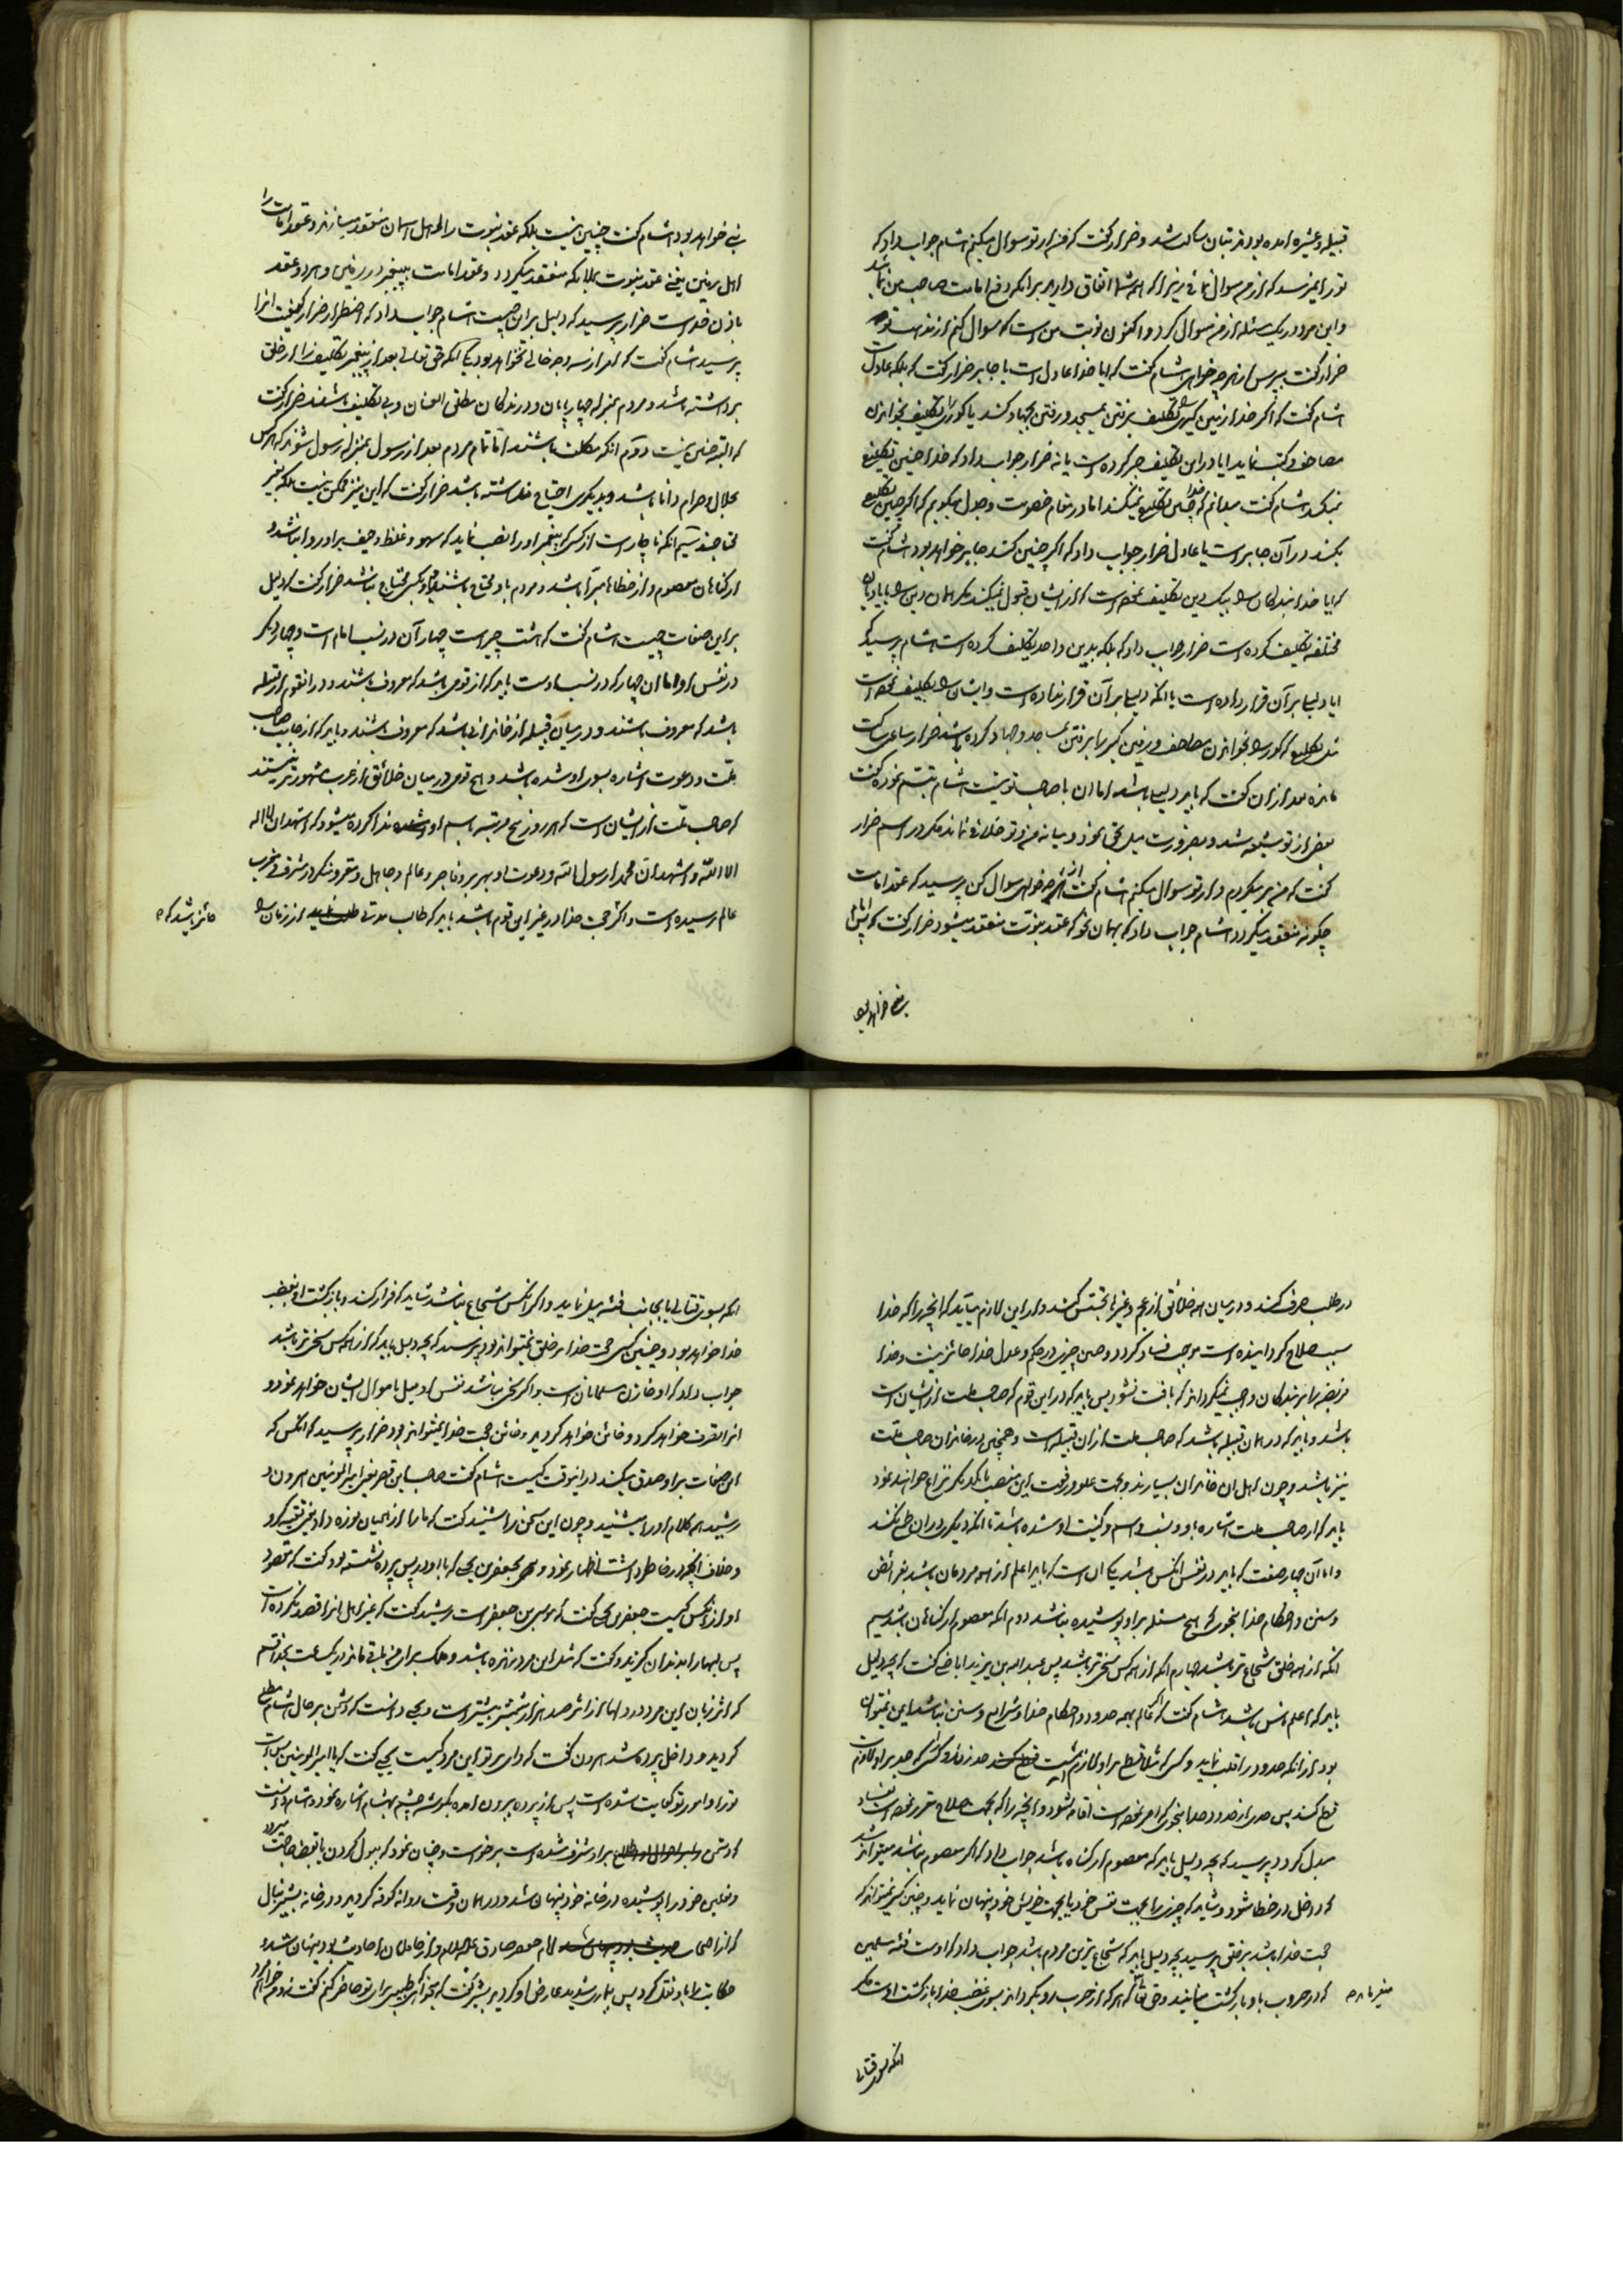 قبیله و عشیره آمده بود فربتان ساکت شد و ضرار گفت که من از تو سوال میکنم هشام جواب داد که
تو را نمیرسد که از من سوال نمائی زیرا که همه شما اتفاق دارید بر انکه دفع امامت صاحب من نمائید
و این مرد در یک مسئله از من سوال کرد و اکنون نوبت من است که سوال کنم از مذهب تو
ضرار گفت بپرس از هر چه خواهی هشام گفت که ایا خدا عادل است یا جابر ضرار گفت که بلکه عادلست
هشام گفت که اگر خدا زمین گیر را تکلیف برفتن بمسجد و رفتن بجهاد کند یا کور را تکلیف بخواندن
مصاحف و کتب نماید ایا در این تکلیف جبر کرده است یا نه ضرار جواب داد که خدا چنین تکلیف
نمیکند هشام گفت میدانم که خدا چنین تکلیف نمیکند اما در مقام خصومت و جدل میگویم که اگر چنین تکلیف
بکند در آن جابر است یا عادل ضرار جواب داد که اگر چنین کند جابر خواهد بود هشام گفت
که ایا خدا بندگان را بیک دین تکلیف نموده است که از ایشان قبول نمیکند مگر همان دین را یا بادیان
مختلفه تکلیف کرده است ضرار جواب داد که بلکه بدین واحد تکلیف کرده است هشام پرسید که
ایا دلیلی بر آن قرار داده است یا انکه دلیلی بر آن قرار نداده است و ایشان را تکلیف نموده است
مثل تکلیف که کور را بخواندن مصاحف و زمین گیر را برفتن بمساجد و جهاد کرده باشد ضرار ساعتی ساکت
مانده بعد از ان گفت که باید دلیلی باشد اما ان با صاحب تو نیست هشام تبسم نموده گفت
بعضی از تو شیعه شد و بضرورت میل بحق نمود و میانه من و تو خلافی نمانده مگر در اسم ضرار
گفت که من بر میگردم و از تو سوال میکنم هشام گفت از هر چه خواهی سوال کن پرسید که عقد امامت
چگونه منعقد میگردد هشام جواب داد که بهمان نحو که عقد نبوت منعقد میشود ضرار گفت که پس امام
نبی خواهد بود
نبی خواهد بود هشام گفت چنین نیست بلکه عقد نبوت را اهل اسمان منعقد میسازند و عقد امامت را
اهل زمین یعنی عقد نبوت بملائکه منعقد میگردد و عقد امامت به پیغمبر در زمین و هر دو عقد
باذن خداست ضرار پرسید که دلیل بر این چیست هشام جواب داد که اضطرار ضرار کیفیت انرا
پرسید هشام گفت که امر از سه وجه خالی نخواهد بود یکی انکه حق تعالی بعد از پیغمبر تکلیف را از خلق
برداشته باشد و مردم بمنزله چارپایان و درندگان مطلق العنان و بی تکلیف باشند ضرار گفت
که البته چنین نیست دوم انکه مکلف باشند اما تمام مردم بعد از رسول بمنزله رسول شوند که هر کس
بحلال و حرام دانا باشد و بدیگری احتیاج نداشته باشد ضرار گفت که این نیز ممکن نیست بلکه بغیر
محتاجند سیم انکه ناچار است از کسی که پیغمبر او را نصب نماید که سهو و غلط و حیف بر او روا نباشد و
از گناهان معصوم و از خطاها مبرا باشد و مردم باو محتاج باشند و او بکسی محتاج نباشد ضرار گفت که دلیل
بر این صفات چیست هشام گفت که هشت چیز است چهار آن در نسب امام است و چهار دیگر
در نفس او اما ان چهار که در نسب اوست باید که از قومی باشد که معروف باشند و در انقوم از قبیله
باشد که معروف باشند و در میان قبیله از خاندانی باشد که معروف باشند و باید که از جانب صاحب
ملت و دعوت اشاره بسوی او شده باشد و هیچ قومی در میان خلائق از عرب مشهورتر نیستند
که صاحب ملت از ایشان است که هر روز پنج مرتبه باسم او ندا کرده میشود که اشهد ان لا اله
الا الله و اشهد ان محمدا رسول الله و دعوت او بهر بر و فاجر و عالم و جاهل و مقر و منکر در شرق و غرب
عالم رسیده است و اگر حجت خدا در غیر این قوم باشد باید که طالب مدتی از زمان را
جائز باشد که
در طلب صرف کند و در میان همه خلائق از عجم و غیره تجسس کنند و از این لازم میآید که انچه را که خدا
سبب صلاح گردانیده است موجب فساد گردد و چنین چیزی در حکم و عدل خدا جائز نیست و خدا
فریضه را بر بندگان واجب نمیگرداند که یافت نشود پس باید که در این قوم که صاحب ملت از ایشان است
باشد و باید که در همان قبیله باشد که صاحب ملت از ان قبیله است و همچنین در خاندان صاحب ملت
نیز باشد و چون اهل ان خاندان بسیارند و بجهت علو و رفعت این منصب با یکدیگر نزاع خواهند نمود
باید که از صاحب ملت اشاره باو و نسب و اسم و کنیت او شده باشد تا انکه دیگری در ان طمع نکند
و اما آن چهار صفت که باید در نفس انکس باشد یکی ان است که باید اعلم از همه مردمان باشد بفرائض
و سنن و احکام خدا بنحوی که هیچ مسئله بر او پوشیده نباشد دوم انکه معصوم از گناهان باشد سیم
انکه از همه خلق شجاع تر باشد چهارم انکه از همه کس سخی تر باشد پس عبد الله بن یزید اباضی گفت که بچه دلیل
باید که اعلم ناس باشد هشام گفت که اگر عالم بهمه حدود و احکام خدا و شرایع و سنن نباشد ایمن نمیتوان
بود از انکه حدود را قلب نماید و کسی که مثلا قطع بر او لازم است حد زند و کسی که حد بر او لازم است
قطع کند پس حدی از حدود خدا بنحوی که امر نموده است اقامه نشود و انچه را که بجهت صلاح مقرر نموده است بفساد
مبدل گردد پرسید که بچه دلیل باید که معصوم از گناه باشد جواب داد که اگر معصوم نباشد میتواند شد
که داخل در خطا شود و شاید که چیزی را بجهت نفس خود یا بجهت خویش خود پنهان نماید و چنین کس نمیتواند که
حجت خدا باشد بر خلق پرسید بچه دلیل باید که شجاع ترین مردم باشد جواب داد که اوست فئه مسلمین
که در حروب باو بازگشت مینمایند و حق تعالی هر که از حرب رو بگرداند بسوی غضب خدا بازگشت اوست مگر
میفرماید
انکه بسوی قتالی
انکه بسوی قتالی یا بجانب فئه میل نماید و اگر انکس شجاع نباشد شاید که فرار کند و بازگشت او بغضب
خدا خواهد بود و چنین کسی حجت خدا بر خلق نمیتواند بود پرسید که بچه دلیل باید که از همه کس سخی تر باشد
جواب داد که او خازن مسلمانان است و اگر سخی نباشد نفس او میل باموال ایشان خواهد نمود و
انرا تصرف خواهد کرد و خائن خواهد گردید و خائن حجت خدا نمیتواند بود ضرار پرسید که انکس که
این صفات بر او صدق میکند در اینوقت کیست هشام گفت صاحب این قصر یعنی امیر المومنین هرون
رشید همه کلام او را میشنید و چون این سخن را شنید گفت که ما را از همیان نوره داد یعنی تقیه کرد
و خلاف انچه در خاطر داشت اظهار نمود و بجعفر بن یحیی که با او در پس پرده نشسته بود گفت که مقصود
او از انکس کیست جعفر بن یحیی گفت که موسی بن جعفر است رشید گفت که غیر اهل انرا قصد نکرده است
پس لبها را بدندان گزید و گفت که مثل این مرد زنده باشد و ملک برای من باقی ماند در یکساعت بخدا قسم
که اثر زبان این مرد در دلها از اثر صد هزار شمشیر بیشتر است و یحیی دانست که رشید بر حال هشام مطلع
گردید و داخل پرده شد هرون گفت که وای بر تو این مرد کیست یحیی گفت که یا امیر المومنین بس است
تو را و امور تو کفایت شده است پس از پرده بیرون امده بگوشه چشم بهشام اشاره نمود و هشام دانست
که رشید بر او مشرف شده است برخواست و چنان نمود که ببول کردن یا قضاء حاجت میرود
و نعلین خود را پوشیده در خانه خود پنهان شد و در همان وقت روانه کوفه گردید و در خانه بشیر نبال
که از اصحاب امام جعفر صادق علیه السلام و از حاملان احادیث بود پنهان شد و
حکایت را باو نقل کرد پس بیماری شدید عارض او گردید بشیر گفت که میخواهی طبیبی برای تو حاضر کنم گفت نه من خواهم مرد